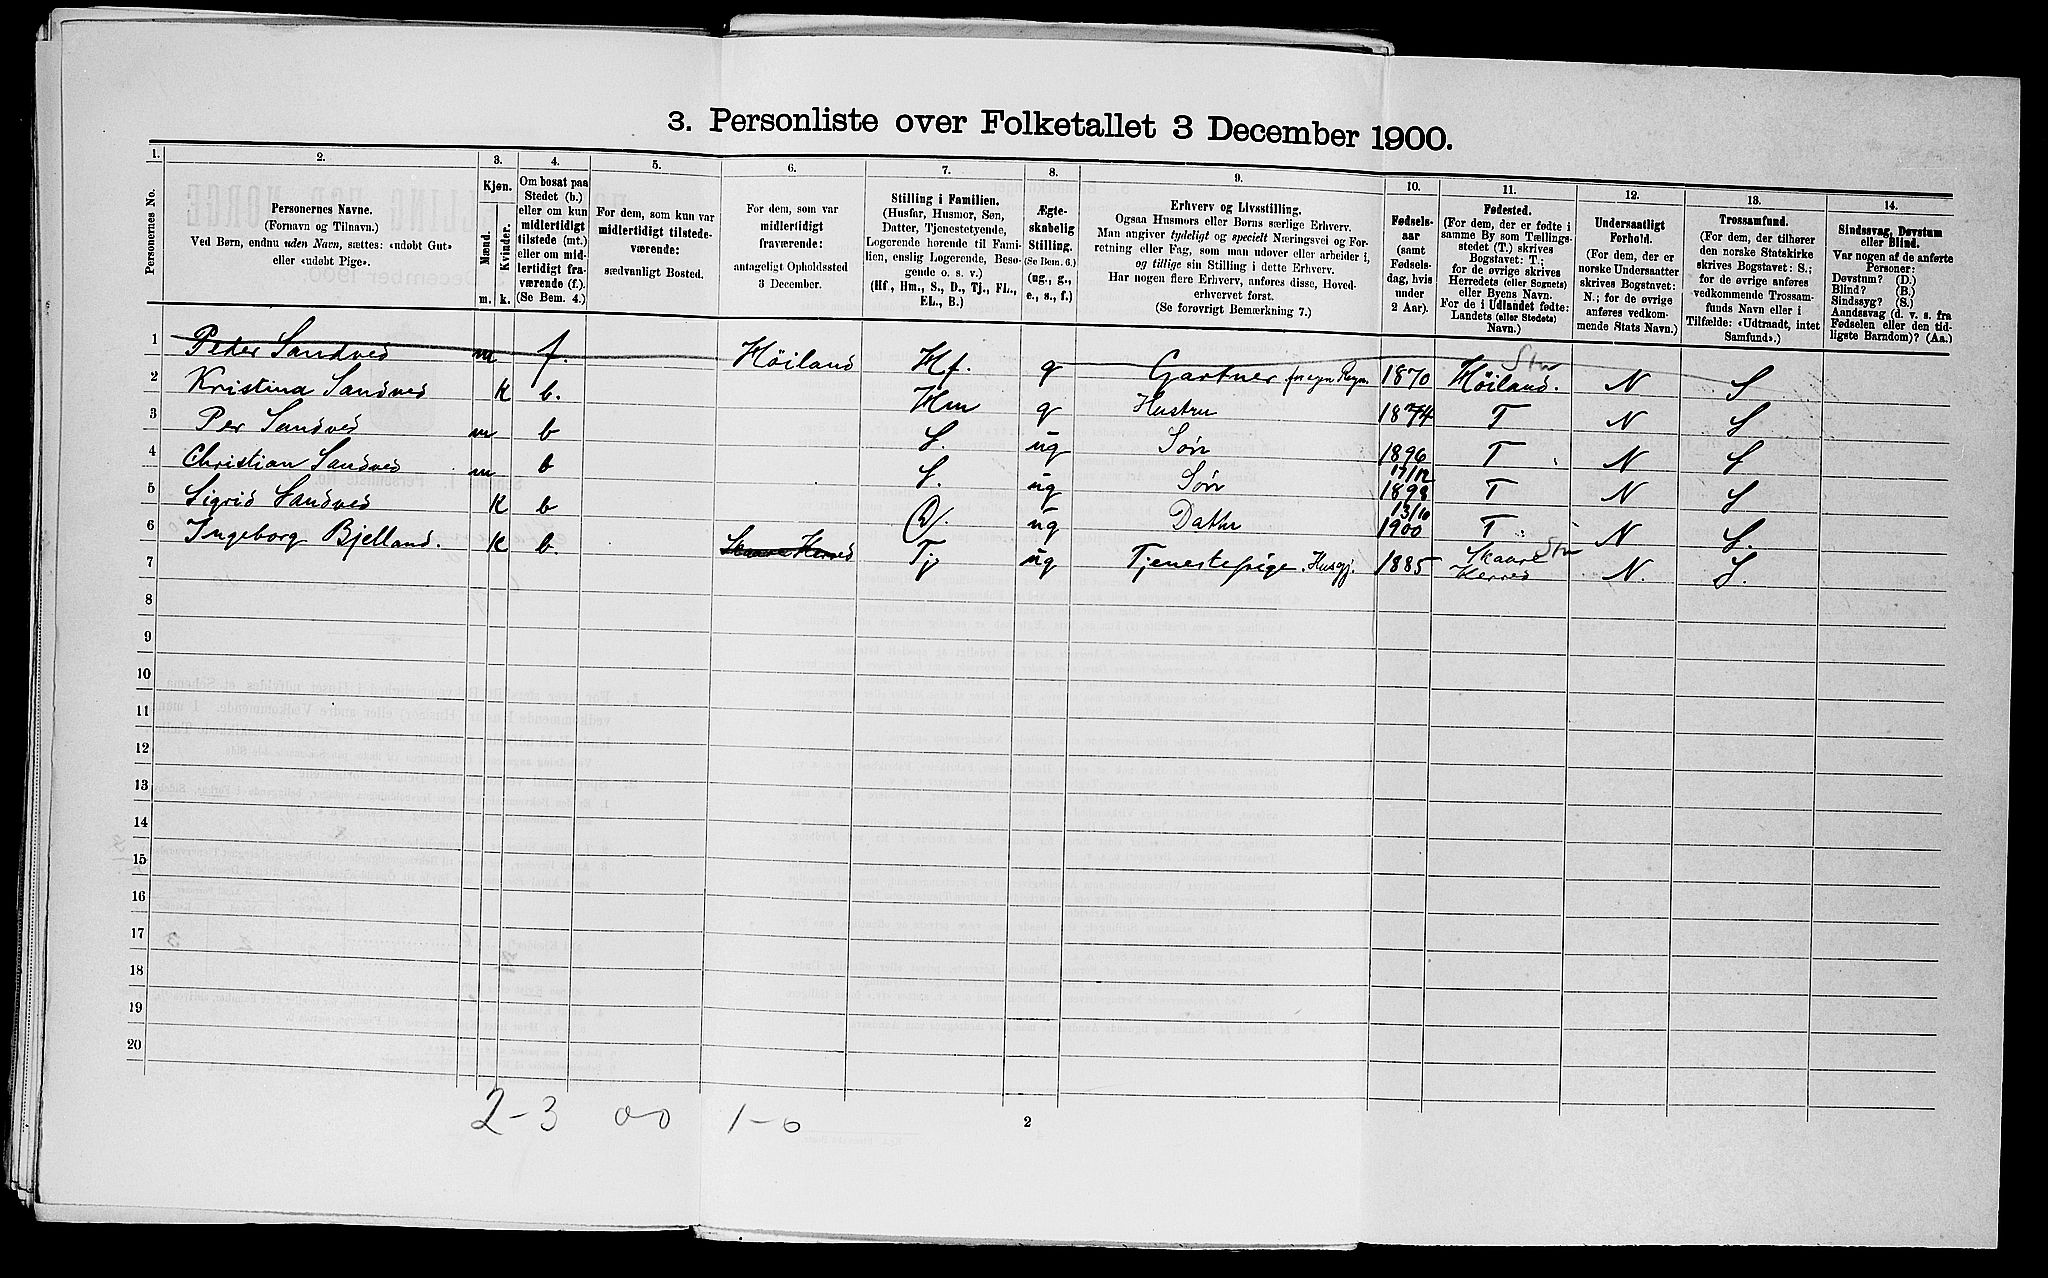 3. Personliste over Folketallet 3 December 1900.
1. 2. 3. 4. 5. 6. 7. 8. 9. 10. 11. 12. 13. 14.
Personernes No.
Personernes Navne.
(Fornavn og Tilnavn.)
Ved Børn, endnu uden Navn, sættes: «udøbt Gut»
eller «udøbt Pige».
Kjøn.
Mænd.
Kvinder.
m. k.
Om bosat paa
Stedet (b.)
eller om kun
midlertidigt
tilstede (mt.)
eller om mid-
lertidigt fra-
værende (f.).
(Se Bem. 4.)
For dem, som kun var
midlertidigt tilstede-
værende:
sædvanligt Bosted.
For dem, som var
midlertidigt
fraværende:
antageligt Opholdssted
3 December.
Stilling i Familien.
(Husfar, Husmor, Søn,
Datter, Tjenestetyende,
Logerende hørende til Fami-
lien, enslig Logerende, Besø-
gende o. s. v.)
(Hf., Hm., S., D., Tj., FL.,
EL., B.)
Ægte-
skabelig
Stilling.
(Se Bem. 6.)
(ug., g.,
e., s., f.)
Erhverv og Livsstilling.
Ogsaa Husmors eller Børns særlige Erhverv.
Man angiver tydeligt og specielt Næringsvei og For-
retning eller Fag, som man udøver eller arbeider i,
og tillige sin Stilling i dette Erhverv.
Har nogen flere Erhverv, anføres disse, Hoved-
erhvervet først.
(Se forøvrigt Bemærkning 7.)
Fødsels-
aar
(samt
Fødsels-
dag, hvis
under
2 Aar).
Fødested.
(For dem, der er fødte i
samme By som Tællings-
stedet (T.) skrives
Bogstavet: T.;
for de øvrige skrives
Herredets (eller Sognets)
eller Byens Navn.
For de i Udlandet fødte:
Landets (eller Stedets)
Navn.)
Undersaatligt
Forhold.
(For dem, der er
norske Undersaatter
skrives Bogstavet:
N.; for de øvrige
anføres vedkom-
mende Stats Navn.)
Trossamfund.
(For dem, der tilhører
den norske Statskirke
skrives Bogstavet: S.;
for de øvrige anføres
vedkommende Trossam-
funds Navn eller i
Tilfælde: «Udtraadt, intet
Samfund».)
Sindssvag, Døvstum
eller Blind.
Var nogen af de anførte
Personer:
Døvstum? (D.)
Blind? (B.)
Sindssyg? (S.)
Aandssvag (d. v. s. fra
Fødselen eller den tid-
ligste Barndom)? (Aa.)
1 Peder Sandved m f. Höiland Hf. g Gartner for egn Regn. 1870 Höiland. N S
2 Kristina Sandved K b. Hm g Hustru 1874 T N S
3 Per Sandved m b S. ug Sön 1896 T N S
4 Christian Sandved m b S. ug Sön 17/12 1898 T N S
5 Sigrid Sandved K b D. ug Datter 13/10 1900 T N S.
6 Ingeborg Bjelland. K b. Skaare Herred Tj ug Tjenestepige. Husgj. 1885 Skaare Herred N. S.
7
8
9
10
11
12
13
14
15
16
17
18
19
20
2-3 00 1-0
2